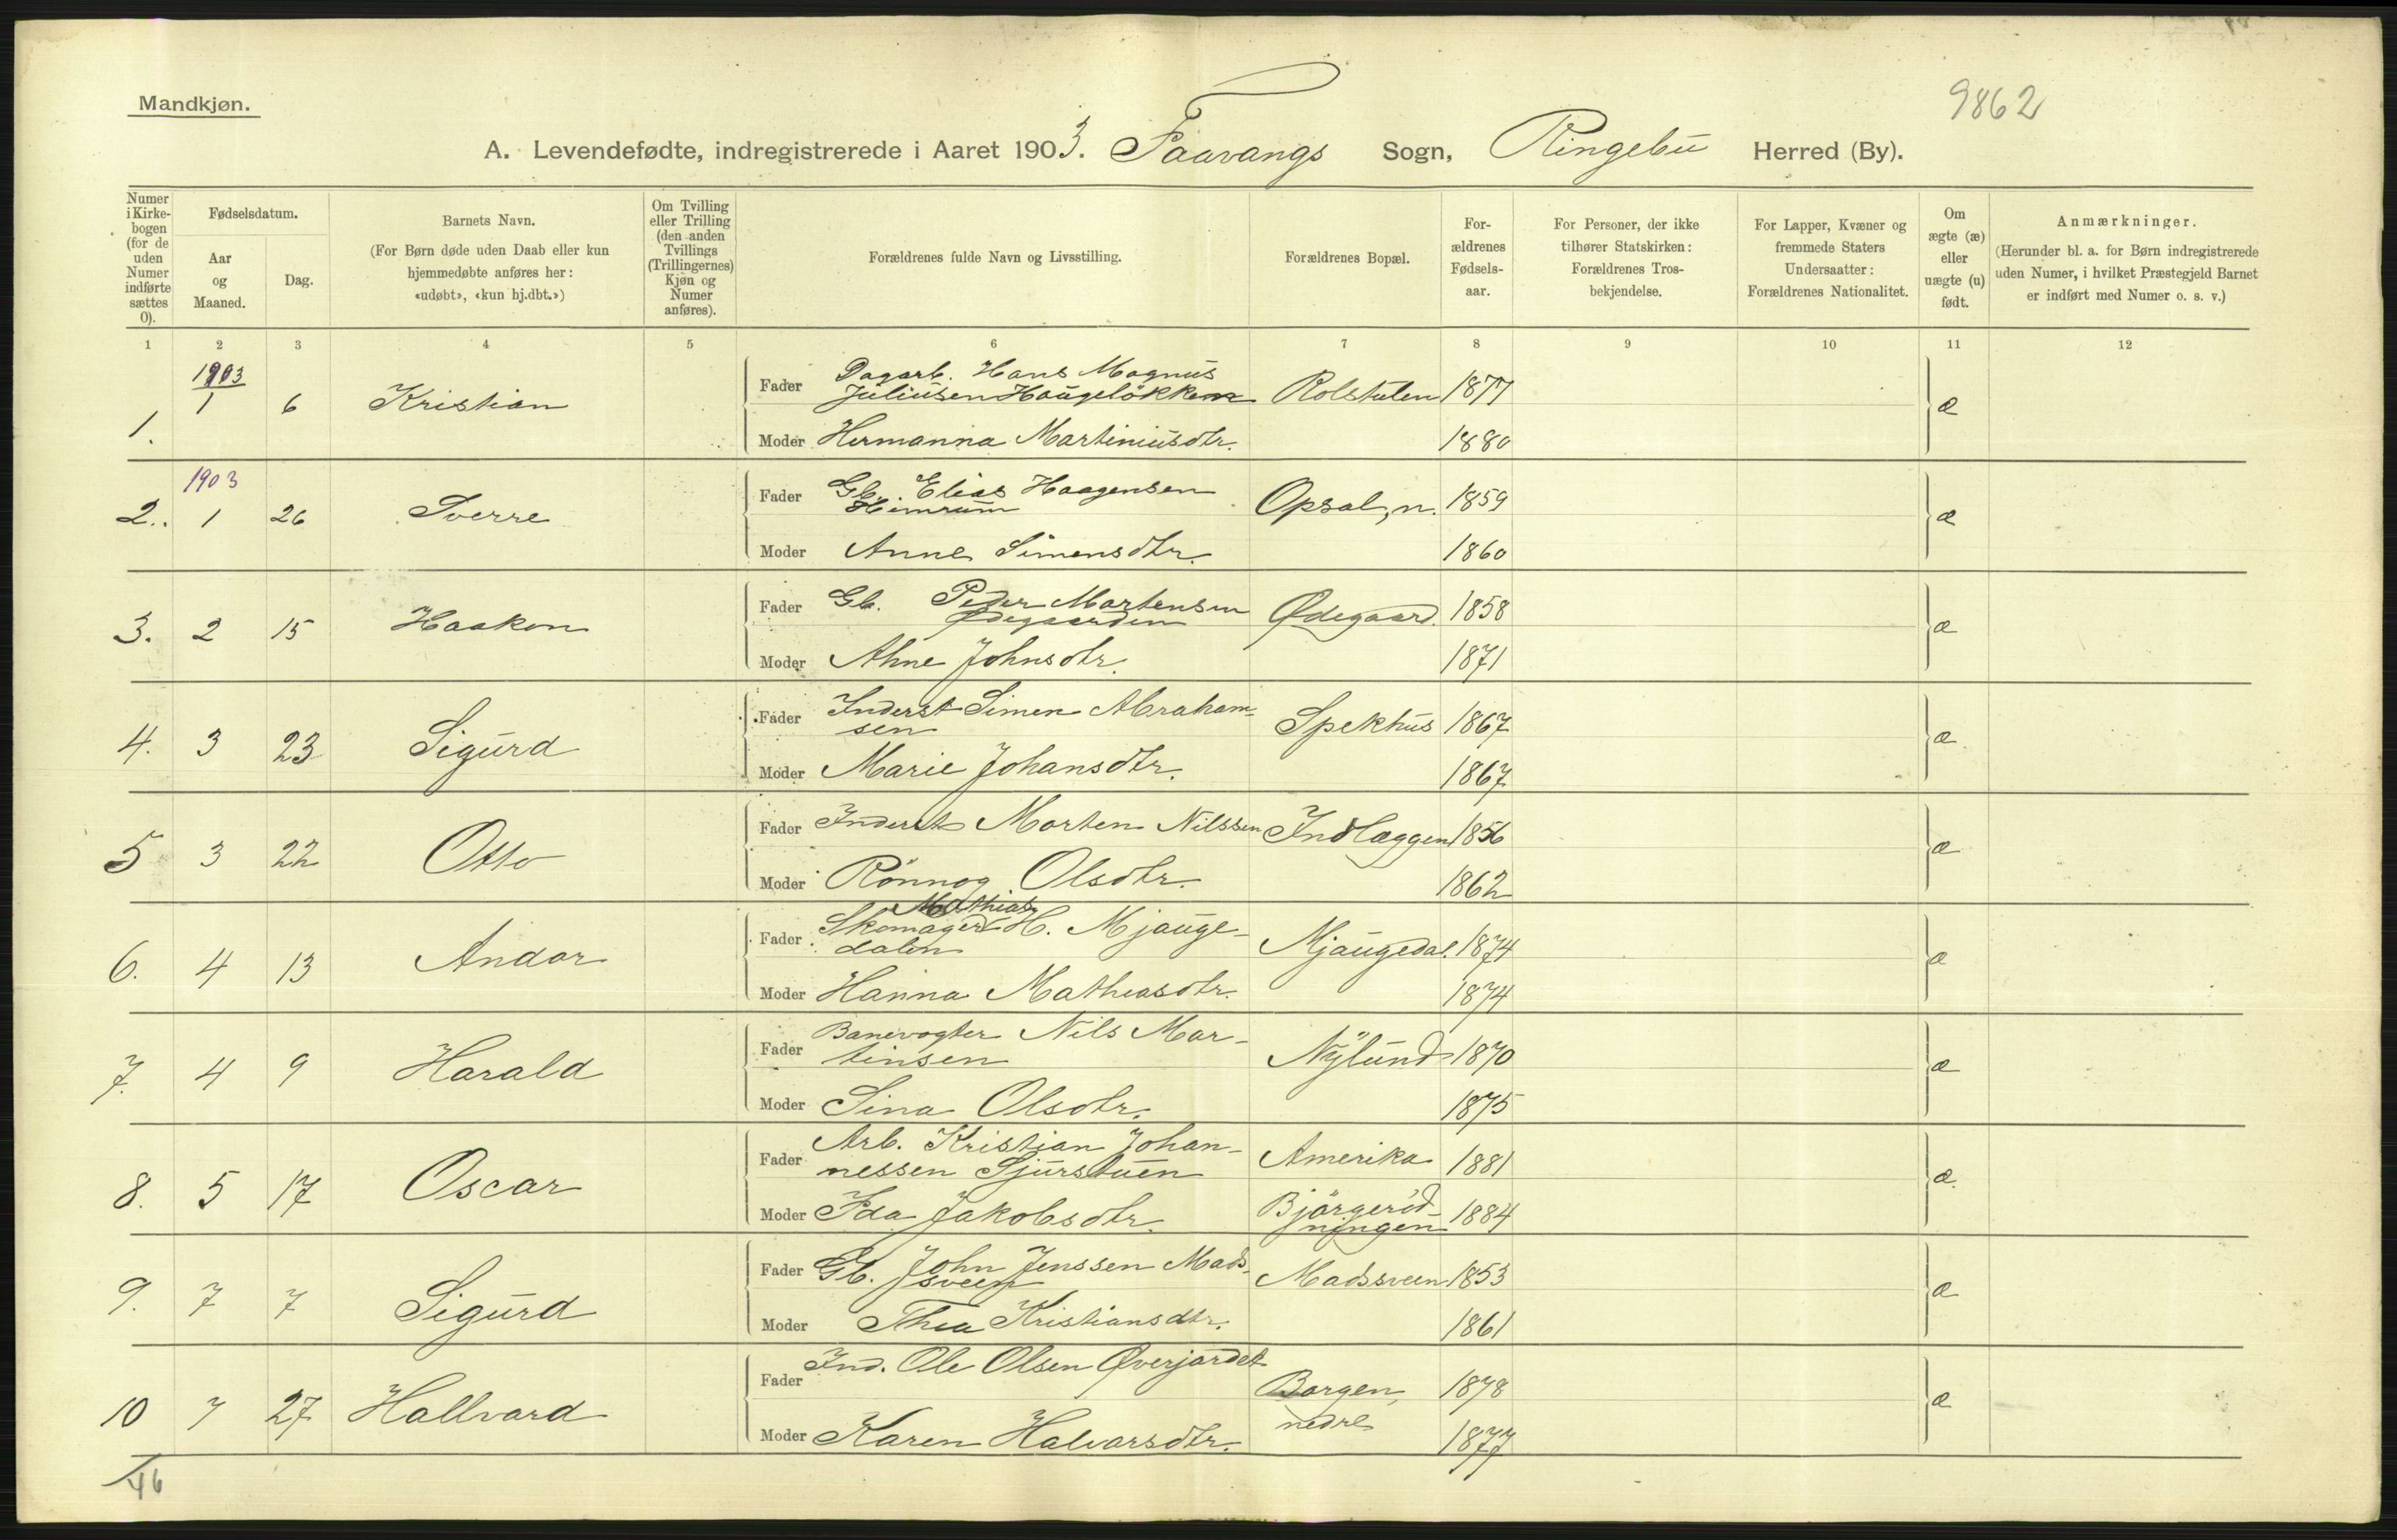 9862
Mandkjøn.
A. Levendefødte, indregistrerede i Aaret 1903. Faavangs Sogn, Ringebu Herred (By).
Numer i Kirkebogen (for de uden Numer indførte sættes 0).
Fødselsdatum.
Aar og Maaned.
Dag.
Barnets Navn.
(For Børn døde uden Daab eller kun hjemmedøbte anføres her: «udøbt», «kun hj.dbt.»)
Om Tvilling eller Trilling (den anden Tvillings (Trillingernes) Kjøn og Numer anføres).
Forældrenes fulde Navn og Livsstilling.
Forældrenes Bopæl.
Forældrenes Fødselsaar.
For Personer, der ikke tilhører Statskirken: Forældrenes Trosbekjendelse.
For Lapper, Kvæner og fremmede Staters Undersaatter: Forældrenes Nationalitet.
Om ægte (æ) eller uægte (u) født.
Anmærkninger.
(Herunder bl. a. for Børn indregistrerede uden Numer, i hvilket Præstegjeld Barnet er indført med Numer o. s. v.)
1 2 3 4 5 6 7 8 9 10 11 12
1. 1903 1 6 Kristian
Fader Dagarb. Hans Magnus
Juliusen Haugelökken Rolstulen 1877 æ
Moder Hermanna Martiniusdtr. 1880
2. 1903 1 26 Sverre
Fader Gb. Elias Haagensen
Himrum Opsal, n. 1859 æ
Moder Anne Simensdtr. 1860
3. 2 15 Haakon
Fader Gb. Peder Martensen
Ødegaarden Ødegaard. 1858 æ
Moder Ahne Johnsdtr. 1871
4. 3 23 Sigurd
Fader Inderst Simen Abraham-
sen Spekhus 1867 æ
Moder Marie Johansdtr. 1867
5 3 22 Otto
Fader Inderst Morten Nilssen Indlæggen 1856 æ
Moder Rönnog Olsdtr. 1862
6. 4 13 Andor
Mathias
Fader Skomager H. Mjauge-
dalen Mjaugedal. 1874 æ
Moder Hanna Mathiasdtr. 1874
7. 4 9 Harald
Fader Banevogter Nils Mar-
tinsen Nylund 1870 æ
Moder Sina Olsdtr. 1875
8. 5 17 Oscar
Fader Arb. Kristian Johan-
nessen Sjurstuen Amerika 1881 æ.
Moder Ida Jakobsdtr. Bjørgeröd-
ningen 1884
9. 7 7 Sigurd
Fader Gb. John Jenssen Mads-
sveen Madssveen 1853 æ
Moder Thea Kristiansdtr. 1861
10 7 27 Hallvard
Fader Ind. Ole Olsen Øverjordet Borgen, 1878 æ
nedre
Moder Karen Halvarsdtr. 1877
46